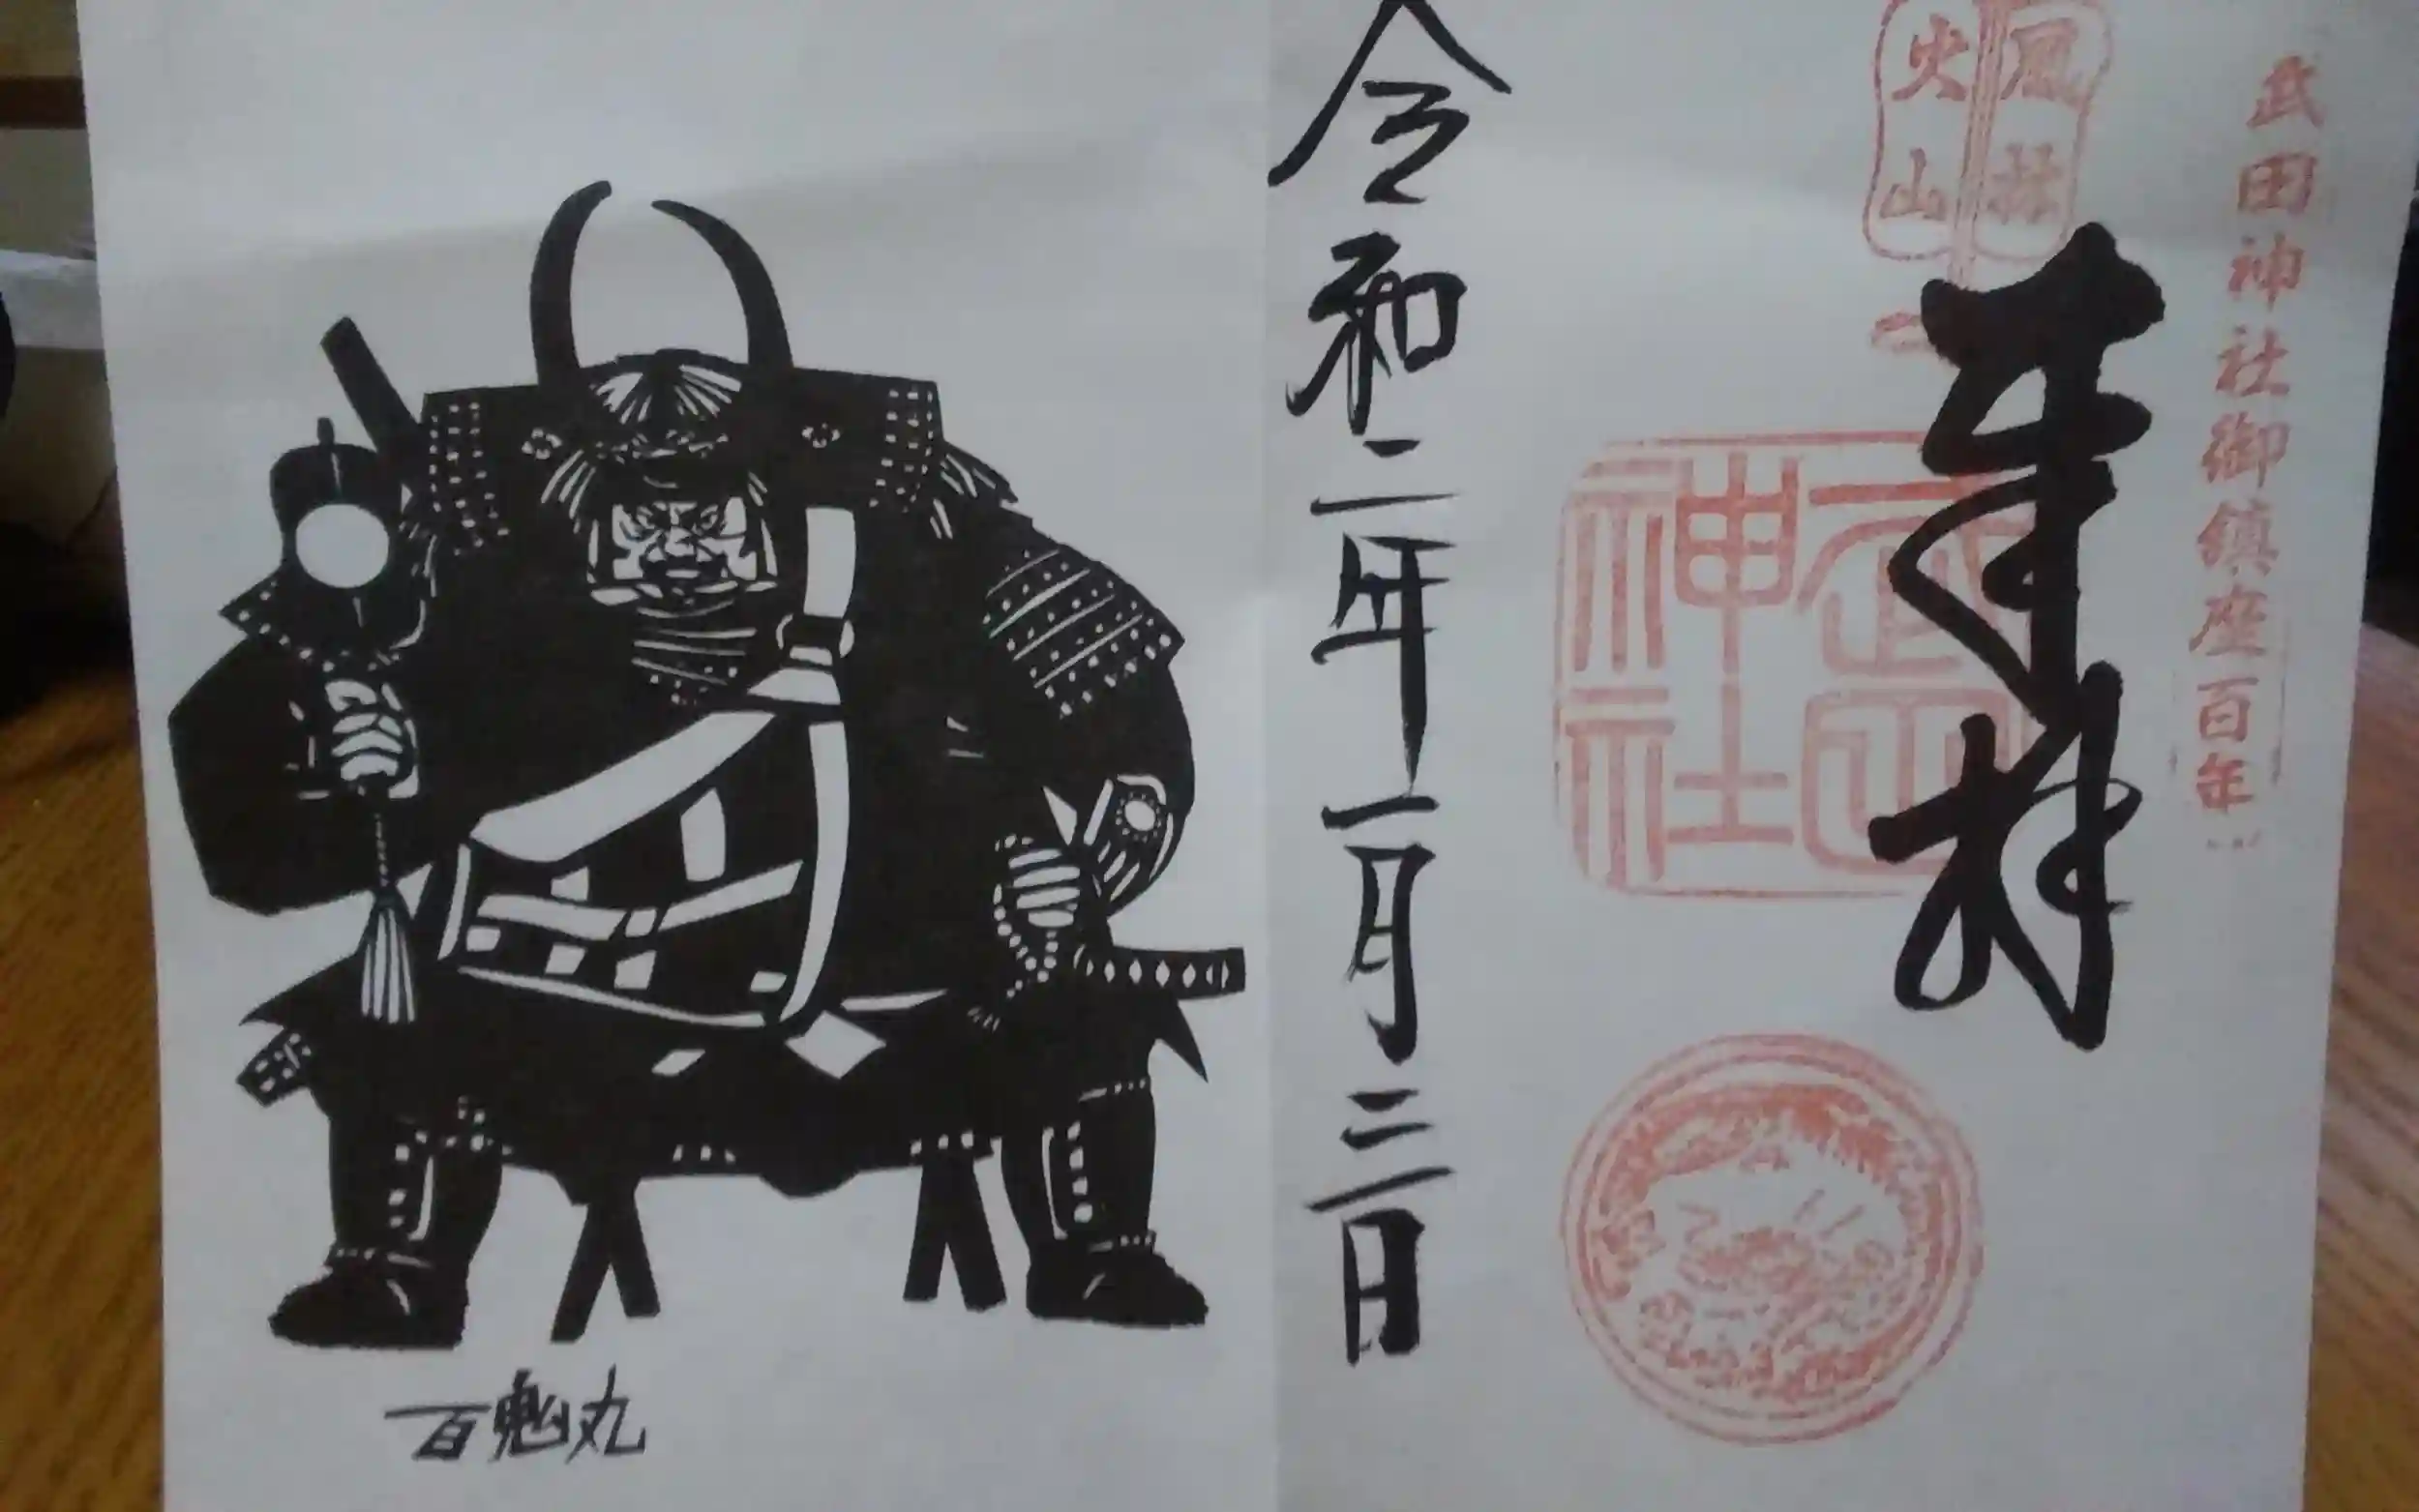 武田神社御鎮座百年
風林
火山
奉拝
武田
神社
令和二年一月三日
百鬼丸